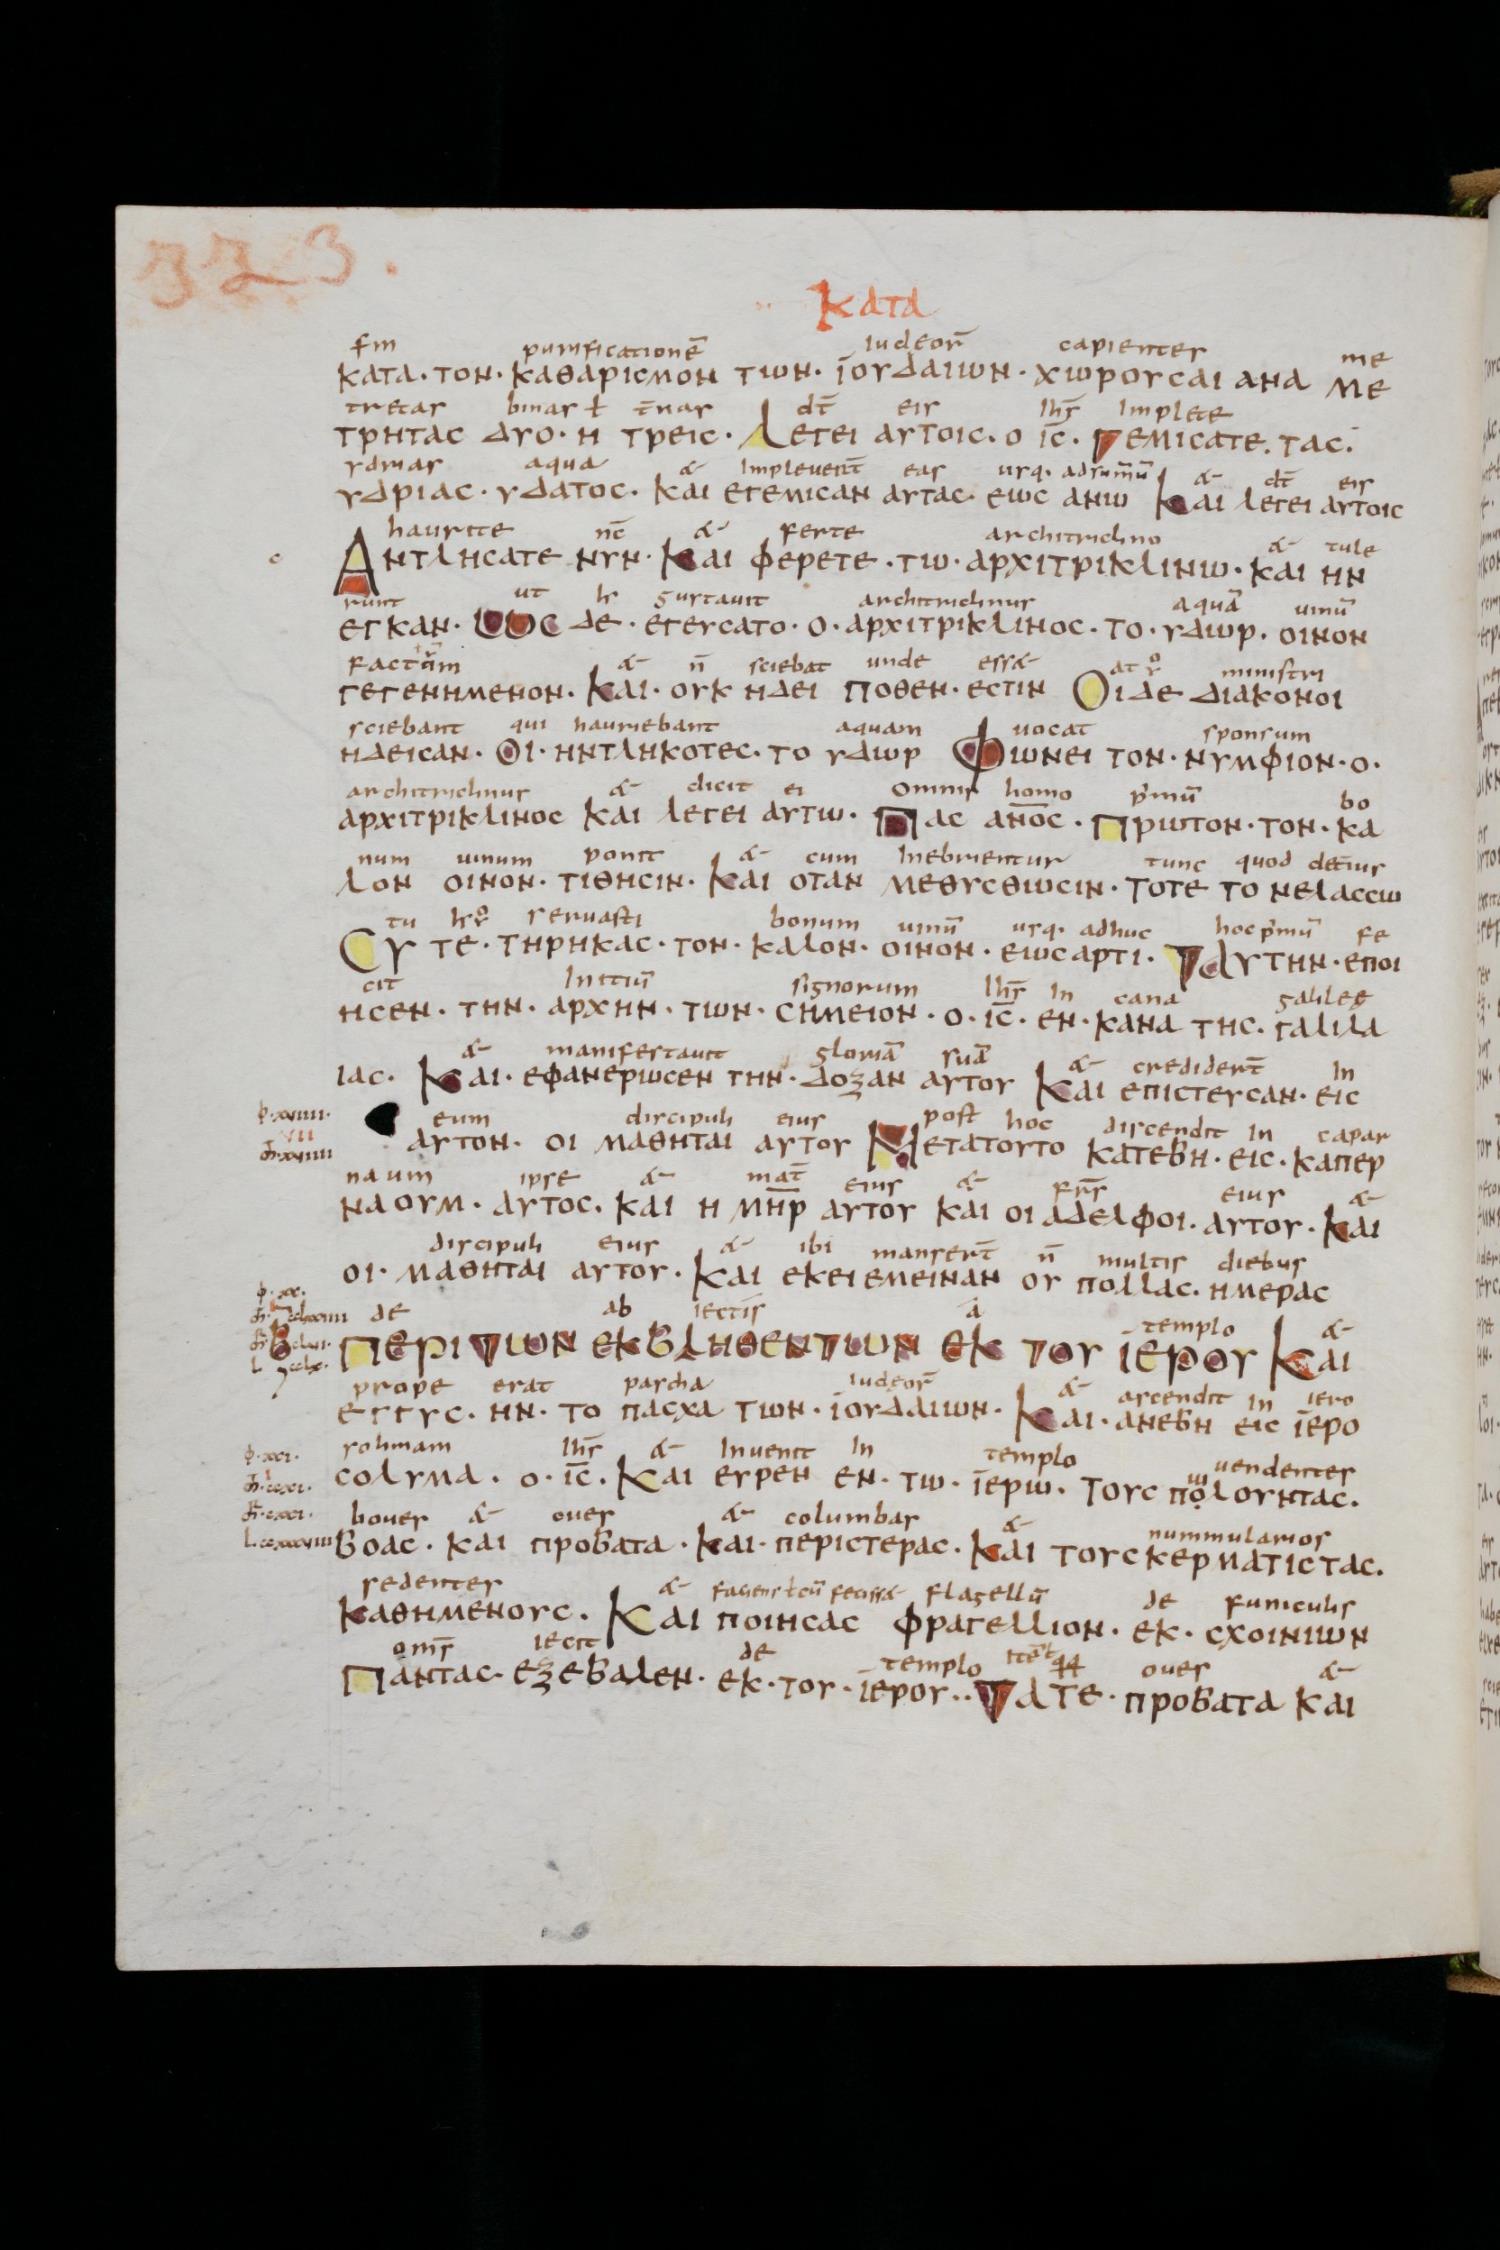 323.
κατα
ſm purificationē iudeoꝝ̄ capienteſ me
κατα· τον· καθαριςμον των· ϊουδαιων· χωρουςαι ανα με
tretaſ binaſ ł t̄naſ dt̄ eiſ ihſ̄ implete
τρητας δυο· η τρεις· Λεγει αυτοις· ο ις̄· Γεμιςατε. τας.
ydriaſ aqua & impleuert̄ eaſ uſq· adſum̄ū & dt̄ eiſ
υδριας· υδατος· και εγεμιςαν αυτας· εως ανω Και λεγει αυτοις
haurite nc̄ & ferte architriclino & tule
Αντληςατε νυν· Και φερετε· τω· αρχιτρικλινω· και ην
runt ut guſtauit architriclinuſ aquā uinū
εγκαν· Ως δε· εγευςατο· ο· αρχιτρικλινος· το· υδωρ· οινον
& n̄ sciebat unde eſſ& miniſtri
γεγενημενον· Και· ουκ ηδει ποθεν· εςτιν Οι δε διακονοι
sciebant qui hauriebant aquam uocat sponſum
ηδειςαν· Οι· ηντληκοτες· το υδωρ Φωνει τον· νυμφιον· ο·
architriclinuſ & dicit ei omniſ homo p̄mū bo
αρχιτρικλινος και λεγει αυτω· Πας ανο̄ς· Πρωτον· τον· κα
num uinum ponit & cum inebrientur tunc quod det̄iuſ
λον οινον· τιθηςιν· Και οταν μεθυςθωςιν· τοτε το νελαςςω
tu ſeruaſti bonum uinū uſq· adhuc hoc p̄mū fe
Cυ τε· τηρηκας· τον· καλον· οινον· εως αρτι· Ταυτην· εποι
cit initiū signorum ihſ̄ in cana galileę
ηςεν· την· αρχην· των· ςημειον· ο· ις̄· εν· κανα της· γαλιλα
& manifeſtauit gloriā ſuā & crediderт̄ in
ιας· Και· εφανερωςεν την· δοξαν αυτου Και επιςτευςαν· εις
eum diſcipuli eiuſ poſt hoc diſcendit in capar
αυτον· οι μαθηται αυτου Μετατουτο κατεβη· εις· καπερ
naum ipſe & mat̄ eiuſ & fr̄ſ eiuſ &
ναουμ· αυτος· και η μη̄ρ αυτου και οι αδελφοι· αυτου· Και
diſcipuli eiuſ & ibi manſert̄ n̄ multiſ diebuſ
οι· μαθηται αυτου· Και εκει εμειναν ου πολλας· ημερας
de ab iectiſ a templo &
Περι των εκβληθεντων εκ του ϊερου Και
prope erat paſcha iudeoꝝ̄ & aſcendit in iero
εγγυς· ην· το παςχα των· ϊουδαιων· Και· ανεβη εις ϊερο
ſolimam ihſ̄ & inuenit in templo uendenteſ
ςολυμα· ο· ις̄· Και ευρεν εν· τω· ϊερω· τους πολουντας·
boueſ & oueſ & columbaſ & nummularioſ
βοας· και προβατα· και· περιςτερας· Και τους κερματιςτας·
ſedenteſ & flagellū de funiculiſ
καθημενους· Και ποιηςας φραγελλιον· εκ· ςχοινιων
om̄ſ iecit de templo oueſ &
Παντας· εξεβαλεν· εκ· του· ϊερου·· Τα τε· προβατα και